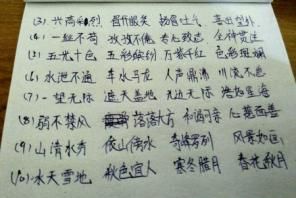 (3). 兴高采烈 眉开眼笑 扬眉吐气 喜出望外
(4). 一丝不苟 孜孜不倦 专心致志 全神贯注
(5). 五光十色 五彩缤纷 万紫千红 色彩斑斓
(6). 水泄不通 车水马龙 人声鼎沸 川流不息
(7). 一望无际 遮天盖地 无边无际
(8). 弱不禁风 落落大方 和蔼可亲 心慈面善
(9). 山清水秀 依山傍水 奇峰罗列 风景如画
(10). 冰天雪地 秋色宜人 寒冬腊月 春花秋月